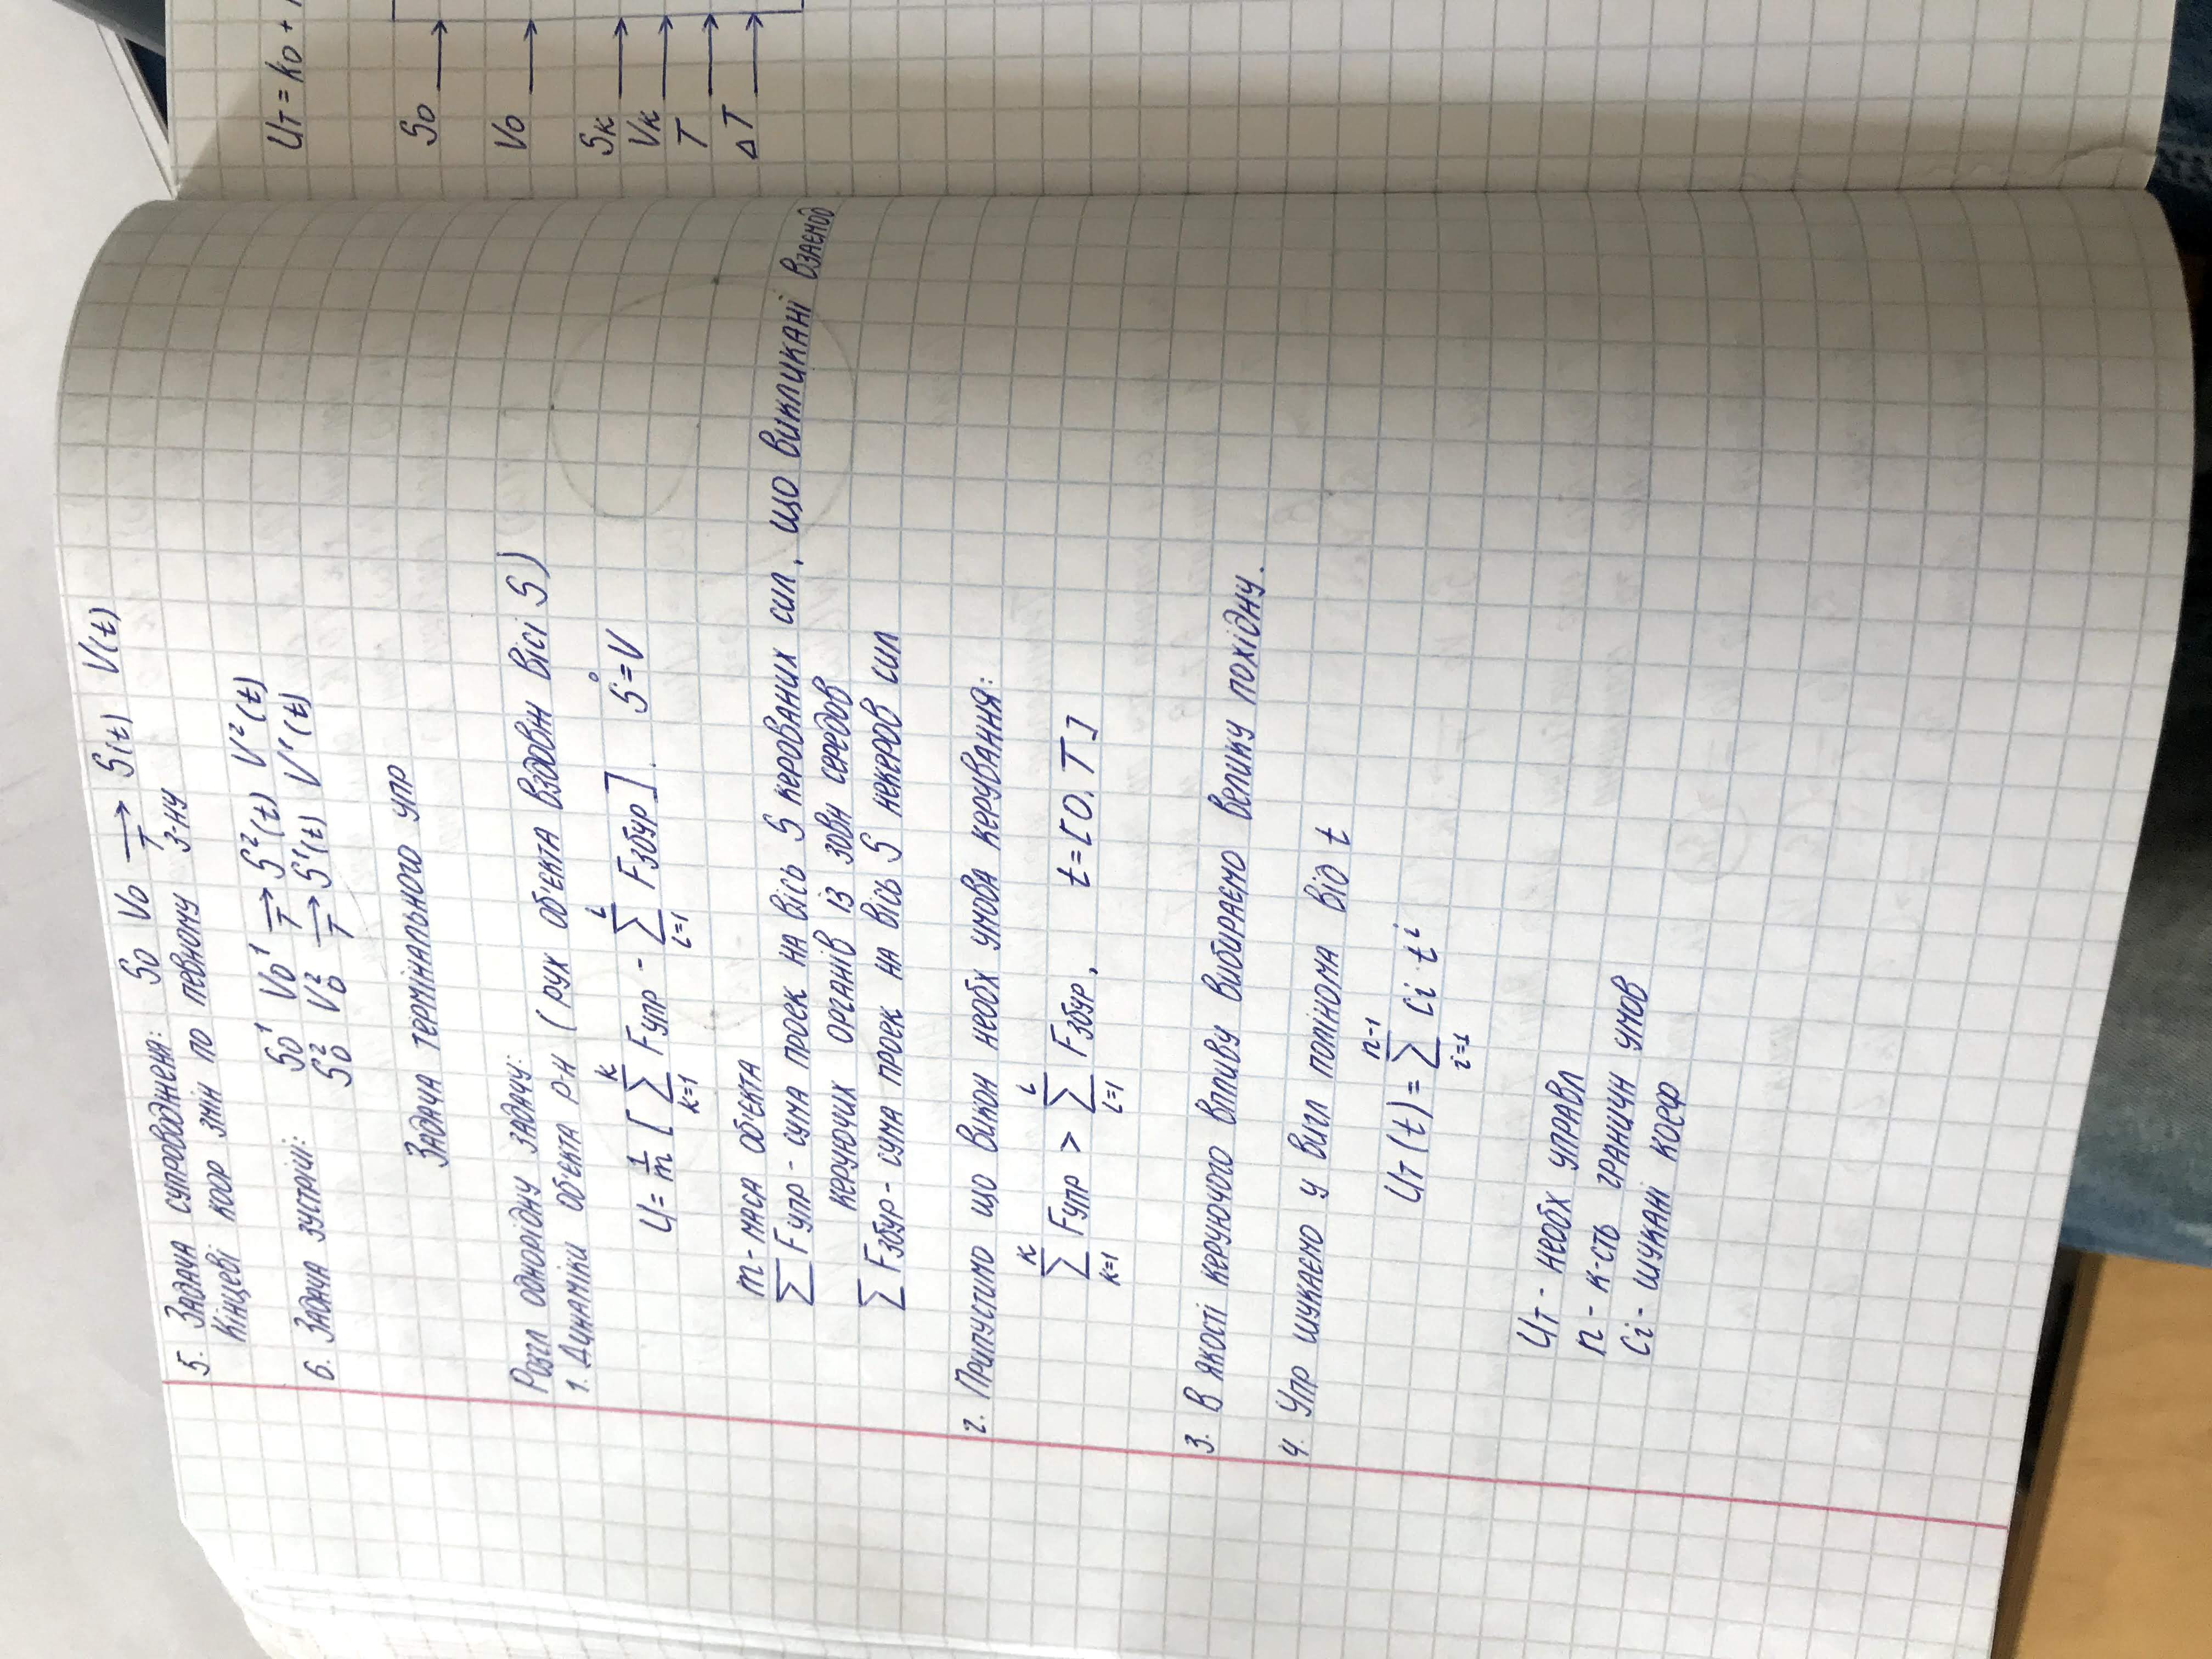 5. Задача супроводженя: S0 V0 →T S(t) V(t)
Кінцеві коор змін по певному з-ну
6. Задача зустрічі: S0¹ V0¹ →T S²(t) V²(t)
S0² V0² →T S¹(t) V¹(t)
Задача термінального упр
Розгл однорідну задачу:
1. Динаміки об'єкта р-н (рух об'єкта вздовж вісі S)
U = 1/m [ ∑(k=1, K) Fупр - ∑(L=1, L) Fзбур ]. S° = V
m - маса об'єкта
∑ Fупр - сума проек на вісь S керованих сил, що викликані взаємод
керуючих органів із зовн середов
∑ Fзбур - сума проек на вісь S некеров сил
2. Припустимо що викон необх умова керування:
∑(k=1, K) Fупр > ∑(L=1, L) Fзбур, t=[0, T]
3. В якості керуючого впливу вибираємо велику похідну.
4. Упр шукаємо у вигл полінома від t
Uт(t) = ∑(i=1, n-1) Ci t^i
Uт - необх управл
n - к-сть граничн умов
Ci - шукані коеф
Uт = k0 +
S0 →
V0 →
Sк →
Vк →
T →
ΔT →